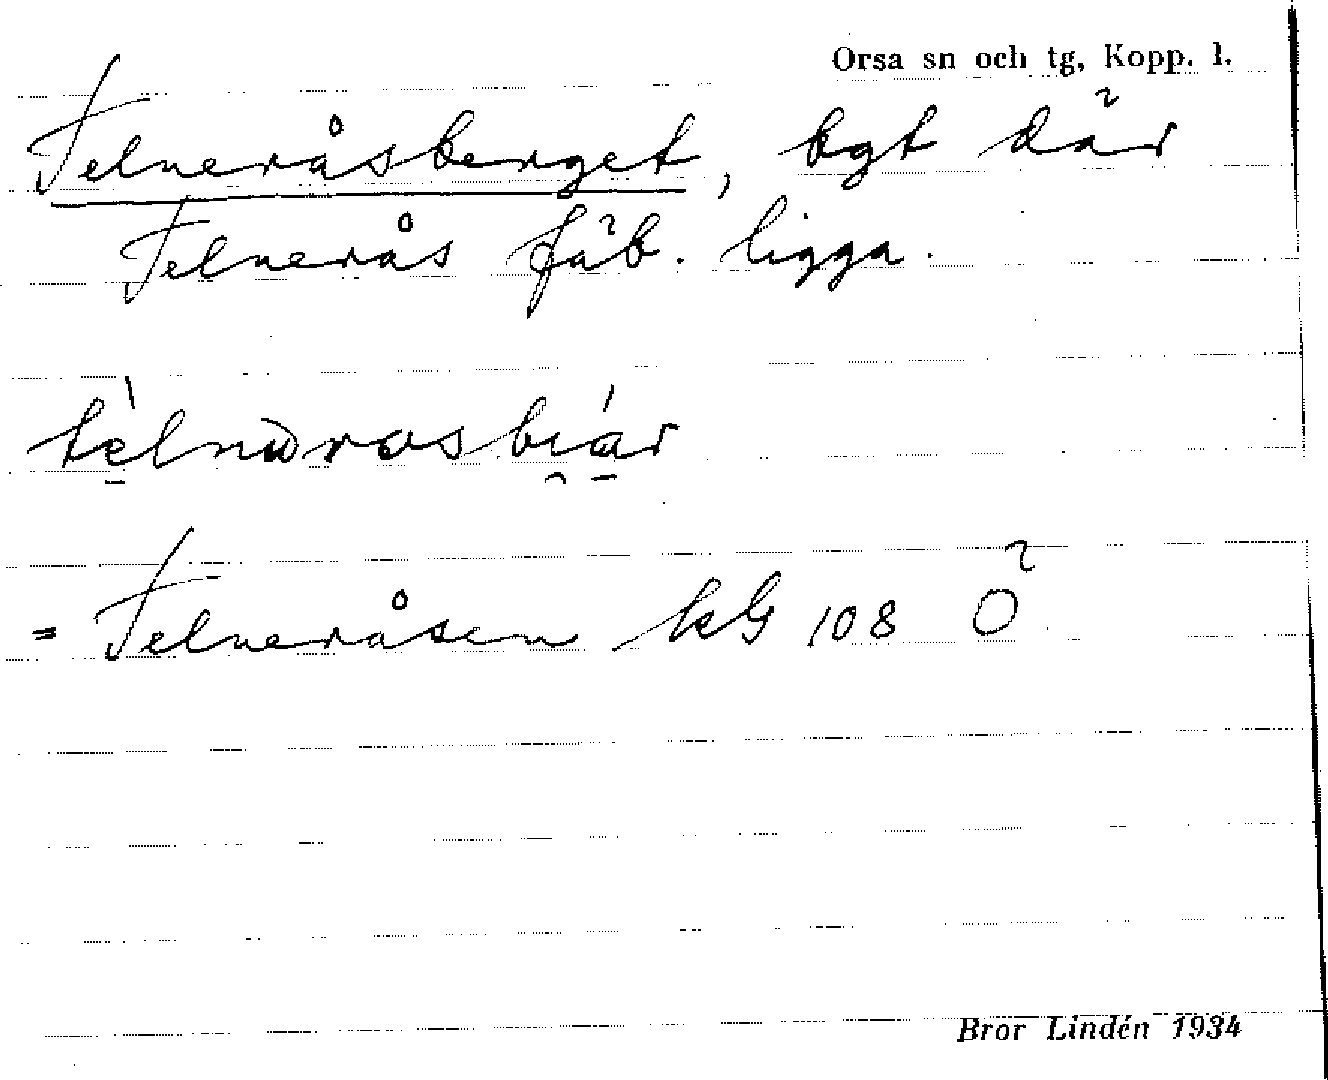 Orsa sn och tg, Kopp. l.
Telneråsberget, bgt där
Telnerås fäb. ligga.
= Telneråsen kG 108 Ö
Bror Lindén 1934